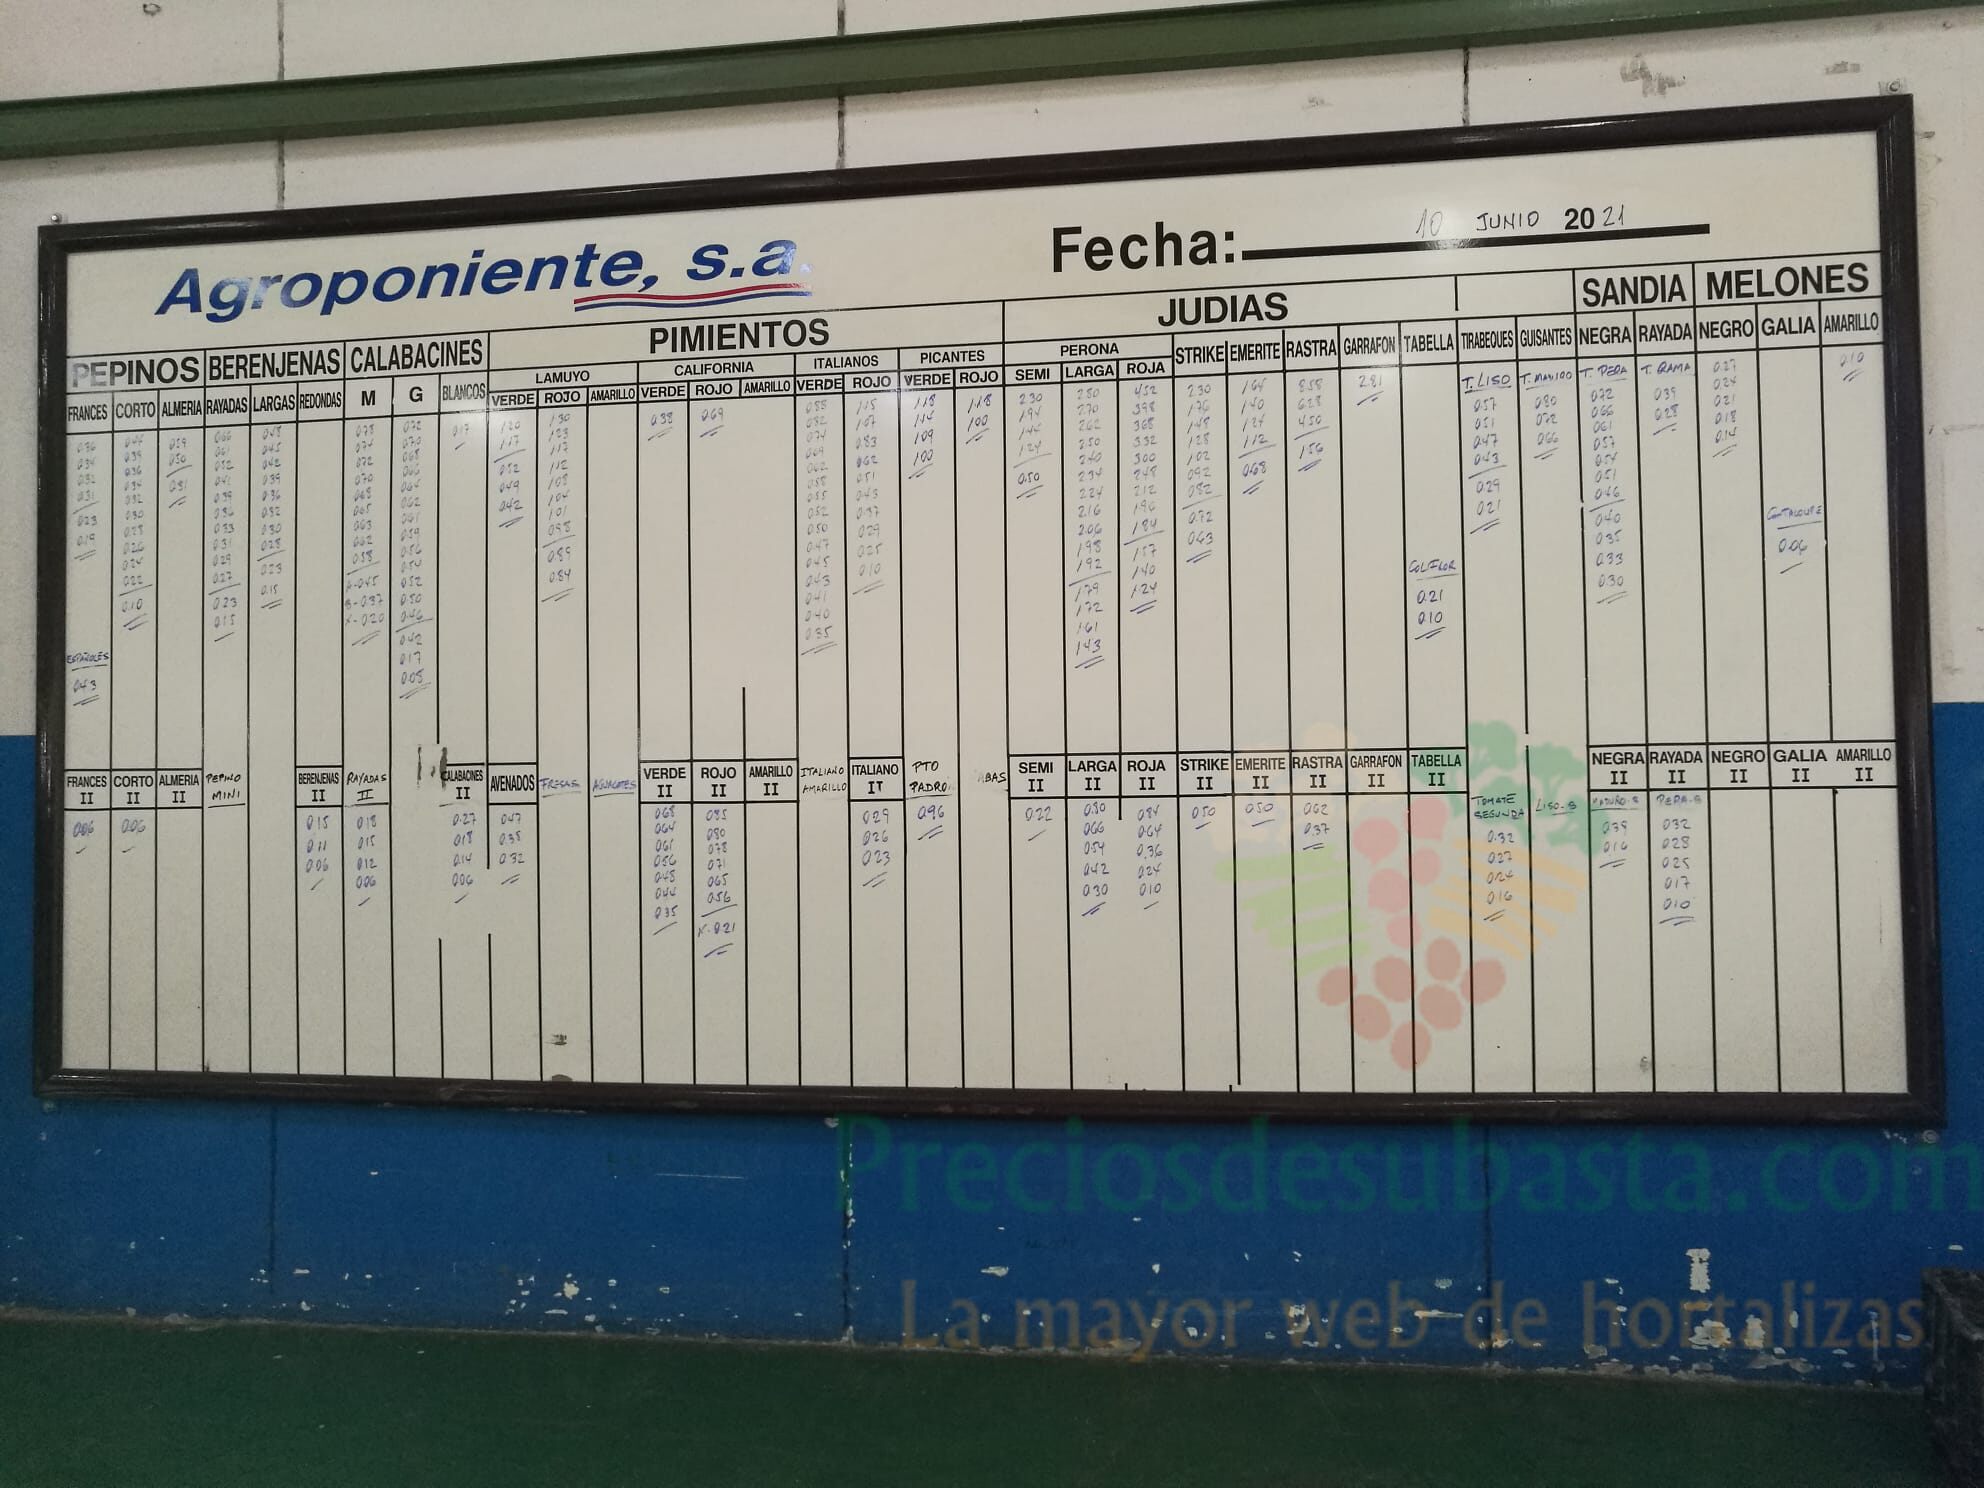 Agroponiente, s.a.
Fecha: 10 JUNIO 2021
PEPINOS BERENJENAS CALABACINES PIMIENTOS JUDIAS SANDIA MELONES
LAMUYO CALIFORNIA ITALIANOS PICANTES PERONA STRIKE EMERITE RASTRA GARRAFON TABELLA TIRABEQUES GUISANTES NEGRA RAYADA NEGRO GALIA AMARILLO
FRANCES CORTO ALMERIA RAYADAS LARGAS REDONDAS M G BLANCOS VERDE ROJO AMARILLO VERDE ROJO AMARILLO VERDE ROJO VERDE ROJO SEMI LARGA ROJA
036 034 032 031 023 019
ESPAÑOLES
043
044 039 036 034 032 030 028 026 024 022 0.10
059 050 031
066 061 052 041 039 036 033 031 029 027 023 015
048 045 042 039 036 032 030 028 023 0.15
078 074 072 070 068 065 063 062 058
072 070 068 066 064 062 061 059 056 054 052 050 046 042 017 0.05
017
120 117 052 049 042
130 123 117 112 108 104 101 098 089 084
038
069
088 082 074 069 062 058 055 052 050 047 045 043 041 040 035
115 107 083 062 051 043 037 029 025 010
118 114 109 100
118 100
230 194 144 124 050
280 270 262 250 240 234 224 216 206 198 192 179 172 161 143
452 398 368 332 300 248 212 196 184 157 140 124
230 176 148 128 102 092 082 072 063
164 140 124 112 068
858 628 450 156
281
COLIFLOR
0.21
010
T. LISO
057 051 047 043 029 021
T. MADURO
080 072 066
T. PERA
072 066 061 057 054 051 046 040 035 033 030
T. RAMA
039 028
027 024 021 018 014
CANTALOUPE
006
010
FRANCES II CORTO II ALMERIA II PEPINO MINI BERENJENAS II RAYADAS II CALABACINES II AVENADOS FRESAS AGUACATES VERDE II ROJO II AMARILLO II ITALIANO AMARILLO ITALIANO II PTO PADRO SEMI II LARGA II ROJA II STRIKE II EMERITE II RASTRA II GARRAFON II TABELLA II NEGRA II RAYADA II NEGRO II GALIA II AMARILLO II
006
006
015 011 006
018 015 012 006
027 018 014 006
047 038 032
068 064 061 056 048 044 035
085 080 078 071 065 056 X-021
029 026 023
096
022
080 066 054 042 030
084 064 036 024 010
050
050
062 037
TOMATE SEGUNDA
032 027 024 016
LISO-S
MADURO-S
039 016
PERA-S
032 028 025 017 010
Preciosdesubasta.com
La mayor web de hortalizas